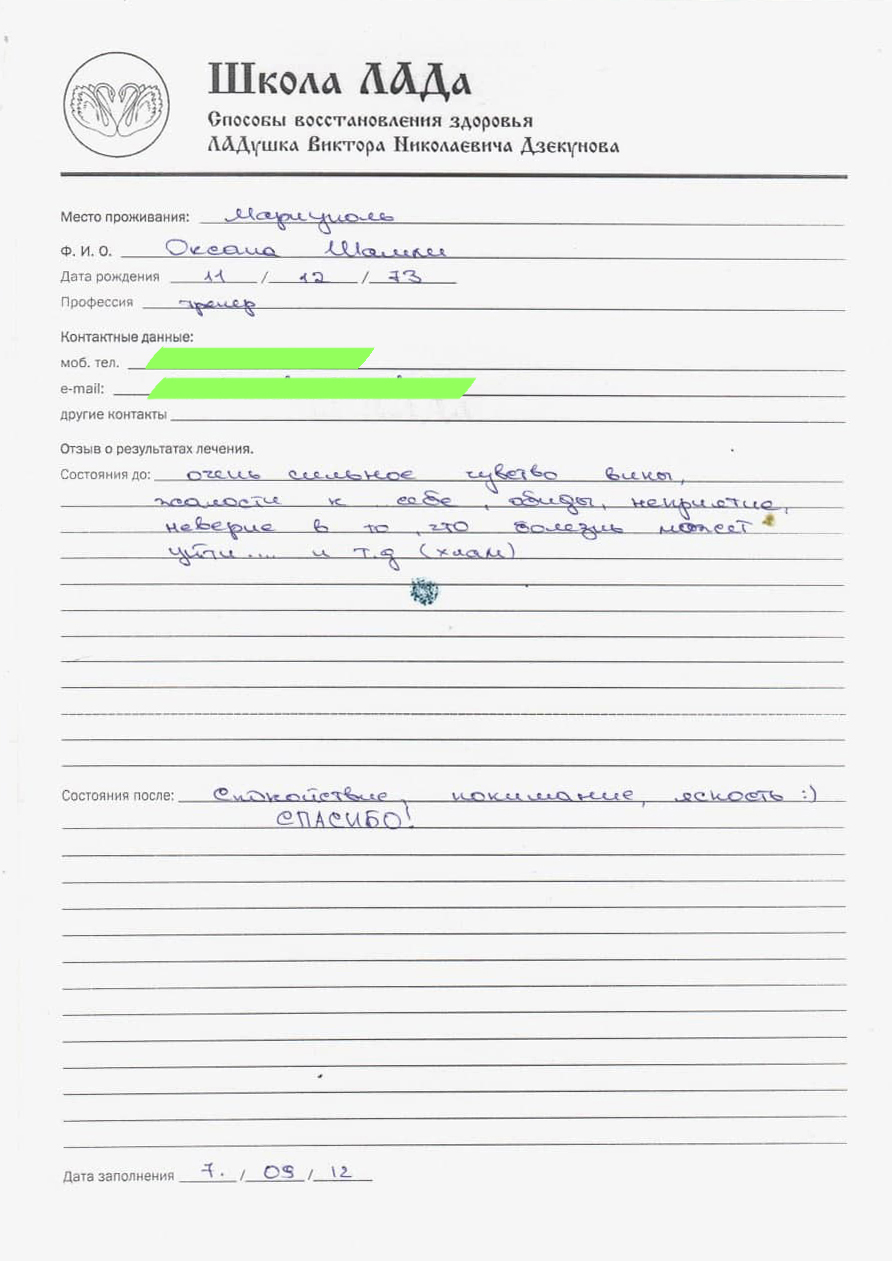 Школа ЛАДа
Способы восстановления здоровья
ЛАДушка Виктора Николаевича Дзекунова
Место проживания: Мариуполь
Ф. И. О. Оксана
Дата рождения 11 / 12 / 73
Профессия тренер
Контактные данные:
моб. тел.
e-mail:
другие контакты
Отзыв о результатах лечения.
Состояния до: очень сильное чувство вины,
жалости к себе, обиды, неприятие,
неверие в то, что болезнь может
уйти.... и т.д (хлам)
Состояния после: Спокойствие, понимание, ясность :)
СПАСИБО!
Дата заполнения 7. / 09 / 12